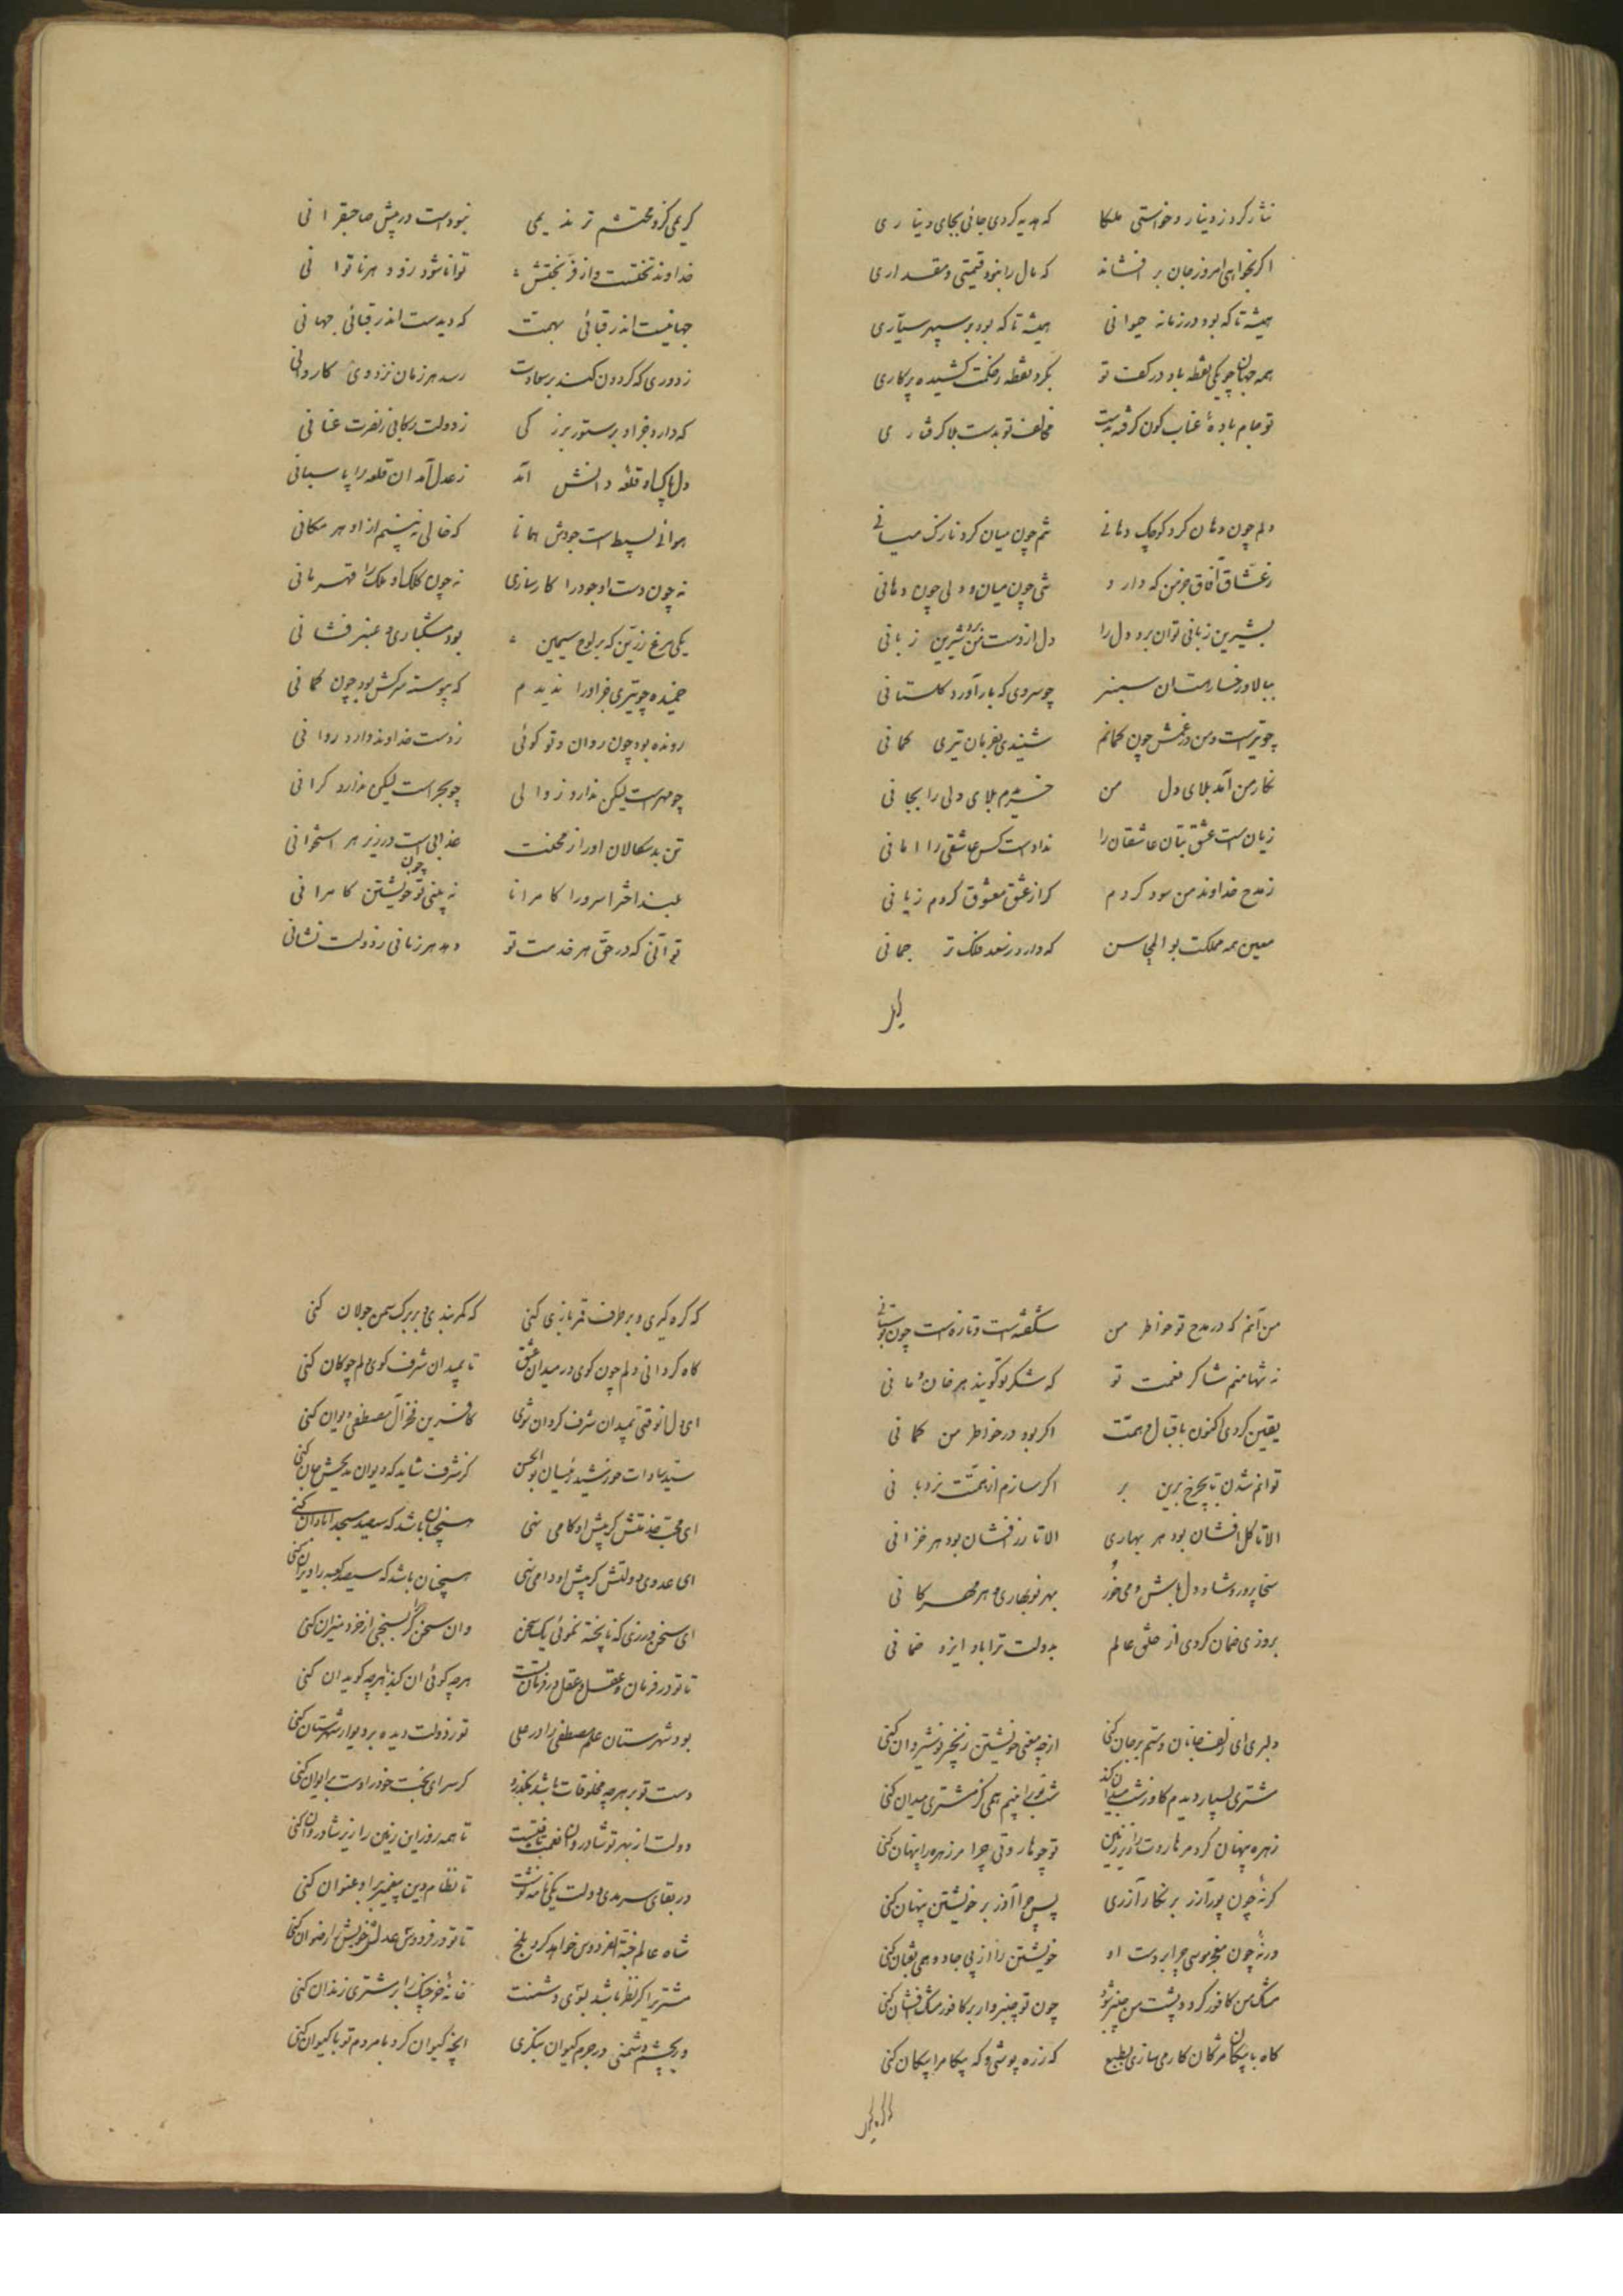 نثار کرد ز دینار و خواستی ملکا که هدیه کردی جانی بجای دیناری
اکر بخواهی امروز جان بر افشاند که مال را نبود قیمتی و مقداری
همیشه تا که بود در زمانه حیوانی همیشه تا که بود بر سپهر سیاری
همه جهان چو یکی نقطه باد در کفت تو بکرد نقطه ز حکمت کشیده پرکاری
تو جام باده عناب کون کرفته بدست مخالف تو بدست بلا کرفتاری
دلم چون دهان کرد کوچک دهانی تنم چون میان کرد نازک میانی
ز عشاق آفاق جز من که دارد تنی چون میان و دلی چون دهانی
بشیرین زبانی توان برد دل را دل از دست من برد شیرین زبانی
ببالا و رخسار هست ان سمنبر چو سروی که بار آورد کلستانی
چو تیرست و من در غمش چون کمانم شنیدی بفرمان تیری کمانی
نکار من آمد بلای دل من خریدم بلای دلی را بجانی
زیان است عشق بتان عاشقان را نداد است کس عاشقی را امانی
ز مدح خداوند من سود کردم کر از عشق معشوق کردم زیانی
معین همه مملکت بو المحاسن که دارد ز سعد فلک ترجمانی
کریمی کزو محتشم تر ندیمی نبودست در پیش صاحبقرانی
خداوند تختست و از فر بختش توانا شود زود هر ناتوانی
جهانیست اندر قبائی بهمت که دیدست اندر قبائی جهانی
ز دوری که کردون کند بر سعادت رسد هر زمان نزد وی کاروانی
که دارد جز او بر ستور بزرکی ز دولت رکابی ز نصرت عنانی
دل پاک او قلعه دانش آمد ز عدل آمد ان قلعه را پاسبانی
هوائی بسیط است جودش همانا که خالی نبینم از او هر مکانی
نه چون دست او جود را کارسازی نه چون کلک او ملک را قهرمانی
یکی مرغ زرین که بر لوح سیمین بود مشکباری و عنبر فشانی
خمیده چو تیری جز او را ندیدم که پیوسته سرکش بود چون کمانی
رونده بود چون روان و تو کوئی ز دست خداوند دارد روانی
چو مهر است لیکن ندارد زوالی چو بحر است لیکن ندارد کرانی
تن بد سکالان او را ز محنت عذابی است در زیر هر استخوانی
بلند اخترا سرورا کامرانا نه بینی تو چون خویشتن کامرانی
تو آنی که در حق هر خدمت تو دهد هر زمانی ز دولت نشانی
من آنم که در مدح تو خواطر من شکفته است و تازه است چون بوستانی
نه تنها منم شاکر نعمت تو که شکر تو کویند هر خان و مانی
یقین کردی اکنون باقبال و همت اکر بود در خواطر من کمانی
توانم شدن تا بچرخ برین بر اکر سازم از همتت نردبانی
الا تا کل افشان بود هر بهاری الا تا رز افشان بود هر خزانی
سخا پرور و شاد دل باش و می خور بهر نوبهاری و هر مهرکانی
بروزی ضمان کردی از خلق عالم بدولت ترا باد ایزد ضمانی
دلبری ای زلف جانان و ستم بر جان کنی از چه معنی خویشتن زنجیر نوشیروان کنی
مشتری بسیار دیدم کاو ز شب میدان کند شب ترا بینم همی کز مشتری میدان کنی
زهره پنهان کرد مر هاروت را زیر زمین تو چو هاروتی چرا مر زهره را پنهان کنی
کر نه چون پور آزر بر نکار آزری پس چرا آذر بر خویشتن پنهان کنی
ور نه چون معجز موسی چرا بر دست او خویشتن را از پی جادو همی ثعبان کنی
مشک من کافور کرد و پشت من چنبر شود چون تو چنبروار بر کافور مشک افشان کنی
کاه با پیکان مژکان کار می سازی بطبع که زره پوشی و که پیکار با پیکان کنی
که کره کیری و بر طرف قمر بازی کنی که کمر بندی و بر برک سمن جولان کنی
کاه کردانی دلم چون کوی در میدان عشق تا بمیدان شرف کوی دلم چوکان کنی
ای دل انوقتی بمیدان شرف کردان شوی کافرین فخر آل مصطفی دیوان کنی
سید سادات خورشید رئیسان بو الحسن کز شرف شاید که دیوان مدیحش جان کنی
ای محب خدمتش کر پیش او کامی نهی همچنان باشد که سیصد مسجد آبادان کنی
ای عدوی دولتش کر پیش او دامی نهی همچنان باشد که سیصد کعبه را ویران کنی
ای سخن ورزی که نا پخته نکوئی یک سخن وان سخن را کر بسنجی از خرد میزان کنی
تا تو در فرمان عقل و عقل در فرمان تست هر چه کوئی ان کند با هر چه کوید ان کنی
بود شهرستان علم مصطفی را در علی تو ز دولت دیده بر دیوار شهرستان کنی
دست تو بر هر چه مخلوقات باشد بکذرد کر سرای بخت خود را دست بر ایوان کنی
دولت از بهر تو شادروان نعمت بافتست تا همه روز این زمین را زیر شادروان کنی
در بقای سرمدی دولت یکی نامه نوشت تا نظام دین پیغمبر برو عنوان کنی
شاه عالم جنة الفردوس خواهد کرد بلخ تا تو در فردوس عدلش خویش را رضوان کنی
مشتریرا کر نظر باشد بسوی دشمنت خانه خرچنک را بر مشتری زندان کنی
ور بچشم دشمنی در جرم کیوان بنکری آنچه کیوان کرد با مردم تو با کیوان کنی